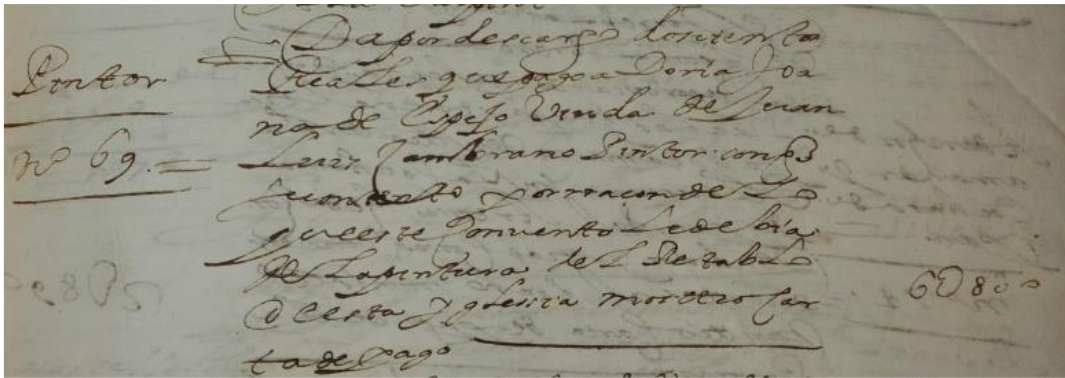 Pintor
nº 69.=
Da por descargo dosientos
Reales que pago a Doña Joa
na de Espejo Viuda de Juan
Luis Zambrano Pintor con q̃
por raçon de Lo
que este Convento Le debia
de La pintura del Retablo
de esta Yglesia mostro Car
ta de pago
6U800